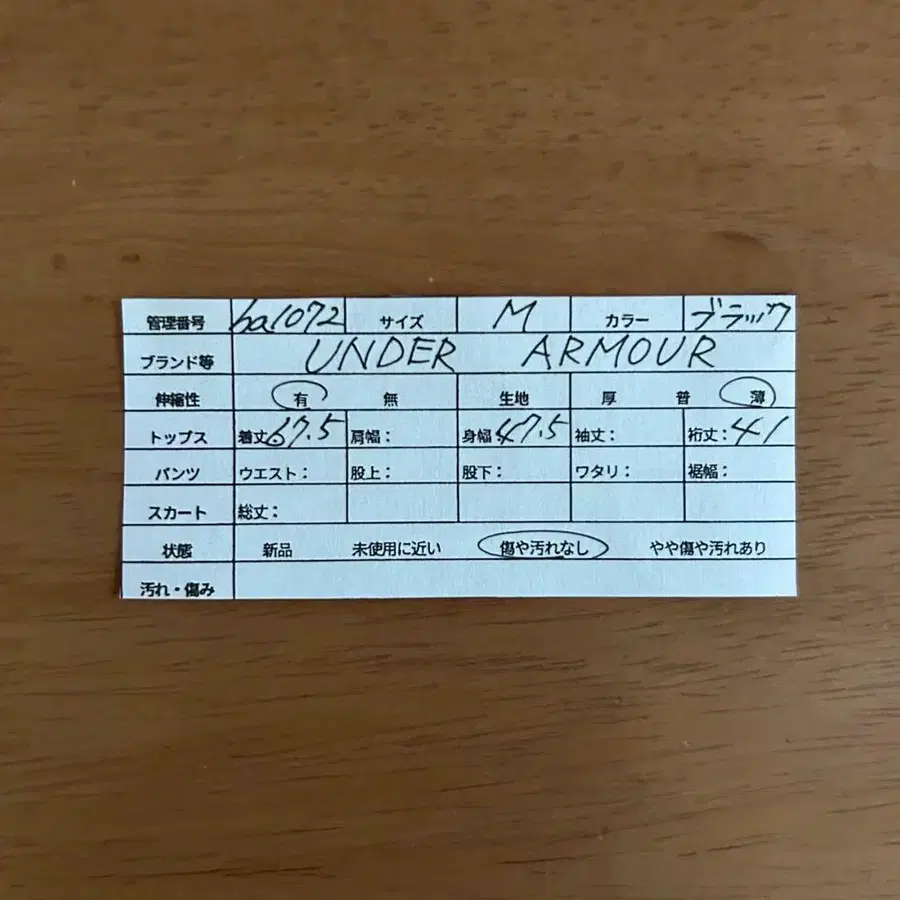 管理番号 ba1072 サイズ M カラー ブラック
ブランド等 UNDER ARMOUR
伸縮性 有 無 生地 厚 普 薄
トップス 着丈67.5 肩幅： 身幅47.5 袖丈： 裄丈：41
パンツ ウエスト： 股上： 股下： ワタリ： 裾幅：
スカート 総丈：
状態 新品 未使用に近い 傷や汚れなし やや傷や汚れあり
汚れ・傷み